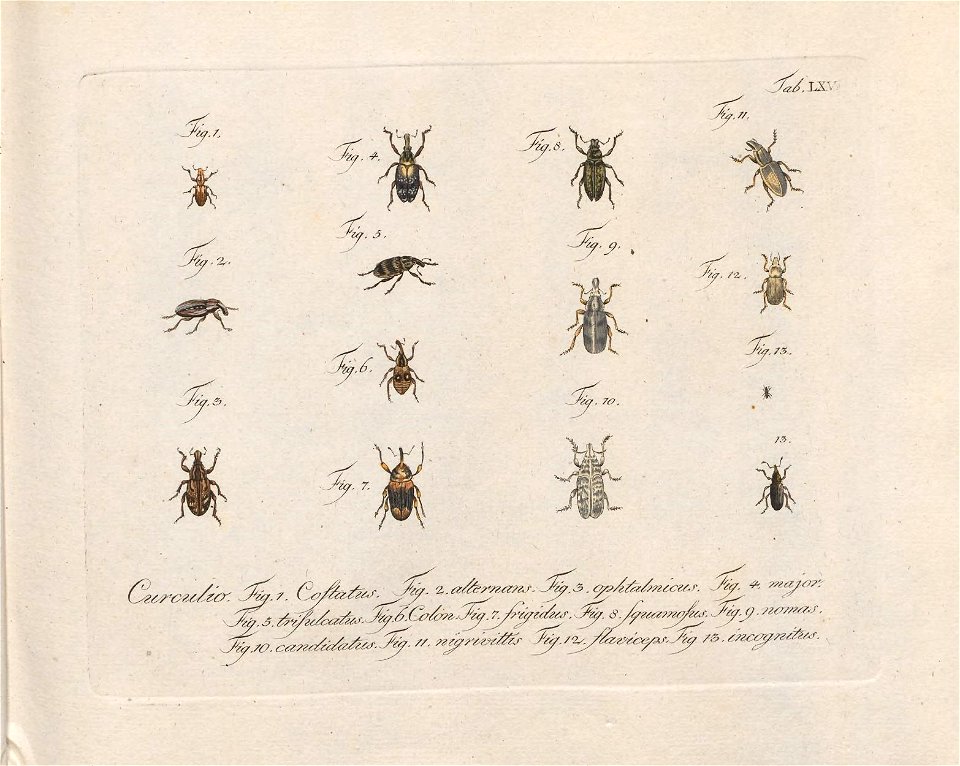 Tab. LXV
Fig. 1.
Fig. 4.
Fig. 8.
Fig. 11.
Fig. 2.
Fig. 5.
Fig. 9.
Fig. 12.
Fig. 6.
Fig. 13.
Fig. 3.
Fig. 10.
Fig. 7.
13.
Curculio. Fig. 1. Coſtatus. Fig. 2. alternans. Fig. 3. ophtalmicus. Fig. 4. major.
Fig. 5. triſulcatus. Fig 6. Colon. Fig. 7. frigidus. Fig. 8. ſquamoſus. Fig. 9. nomas.
Fig. 10. candidatus. Fig. 11. nigrivittis Fig. 12. flaviceps. Fig 13. incognitus.